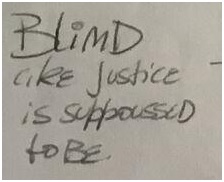 BLiND
like Justice
is suppoussed
to BE.